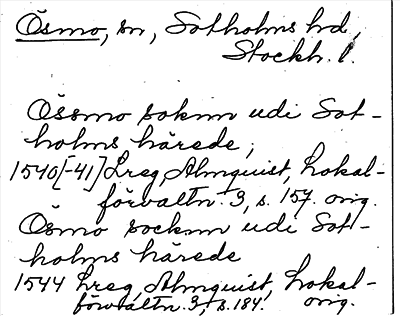 Ösmo, sn, Sotholms hd,
Stockh. l.
Össmo soknn udi Sot-
holms härede;
1540[-41] Lreg, Almquist, Lokal-
förvaltn. 3, s. 157. orig.
Ösmo socknn udi Sot-
holms härede
1544 Lreg, Almquist, Lokal-
förvaltn. 3, s. 184. orig.